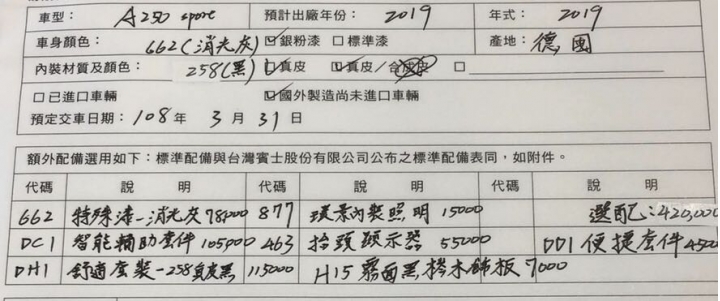 車型： A250 sport 預計出廠年份： 2019 年式： 2019
車身顏色： 662(消光灰) ☑銀粉漆 □標準漆 產地： 德國
內裝材質及顏色： 258(黑) ☑真皮 ☑真皮／合成皮 □
□已進口車輛 ☑國外製造尚未進口車輛
預定交車日期：108年 3月 31日
額外配備選用如下：標準配備與台灣賓士股份有限公司公布之標準配備表同，如附件。
代碼 說 明 代碼 說 明 代碼 說 明
662 特殊漆-消光灰 78000 877 環景內裝照明 15000 選配：420,000
DC1 智能輔助套件 105000 463 抬頭顯示器 55000 DD1 便捷套件 45000
DH1 舒適套裝-258真皮黑 115000 H15 霧面黑椴木飾板 7000